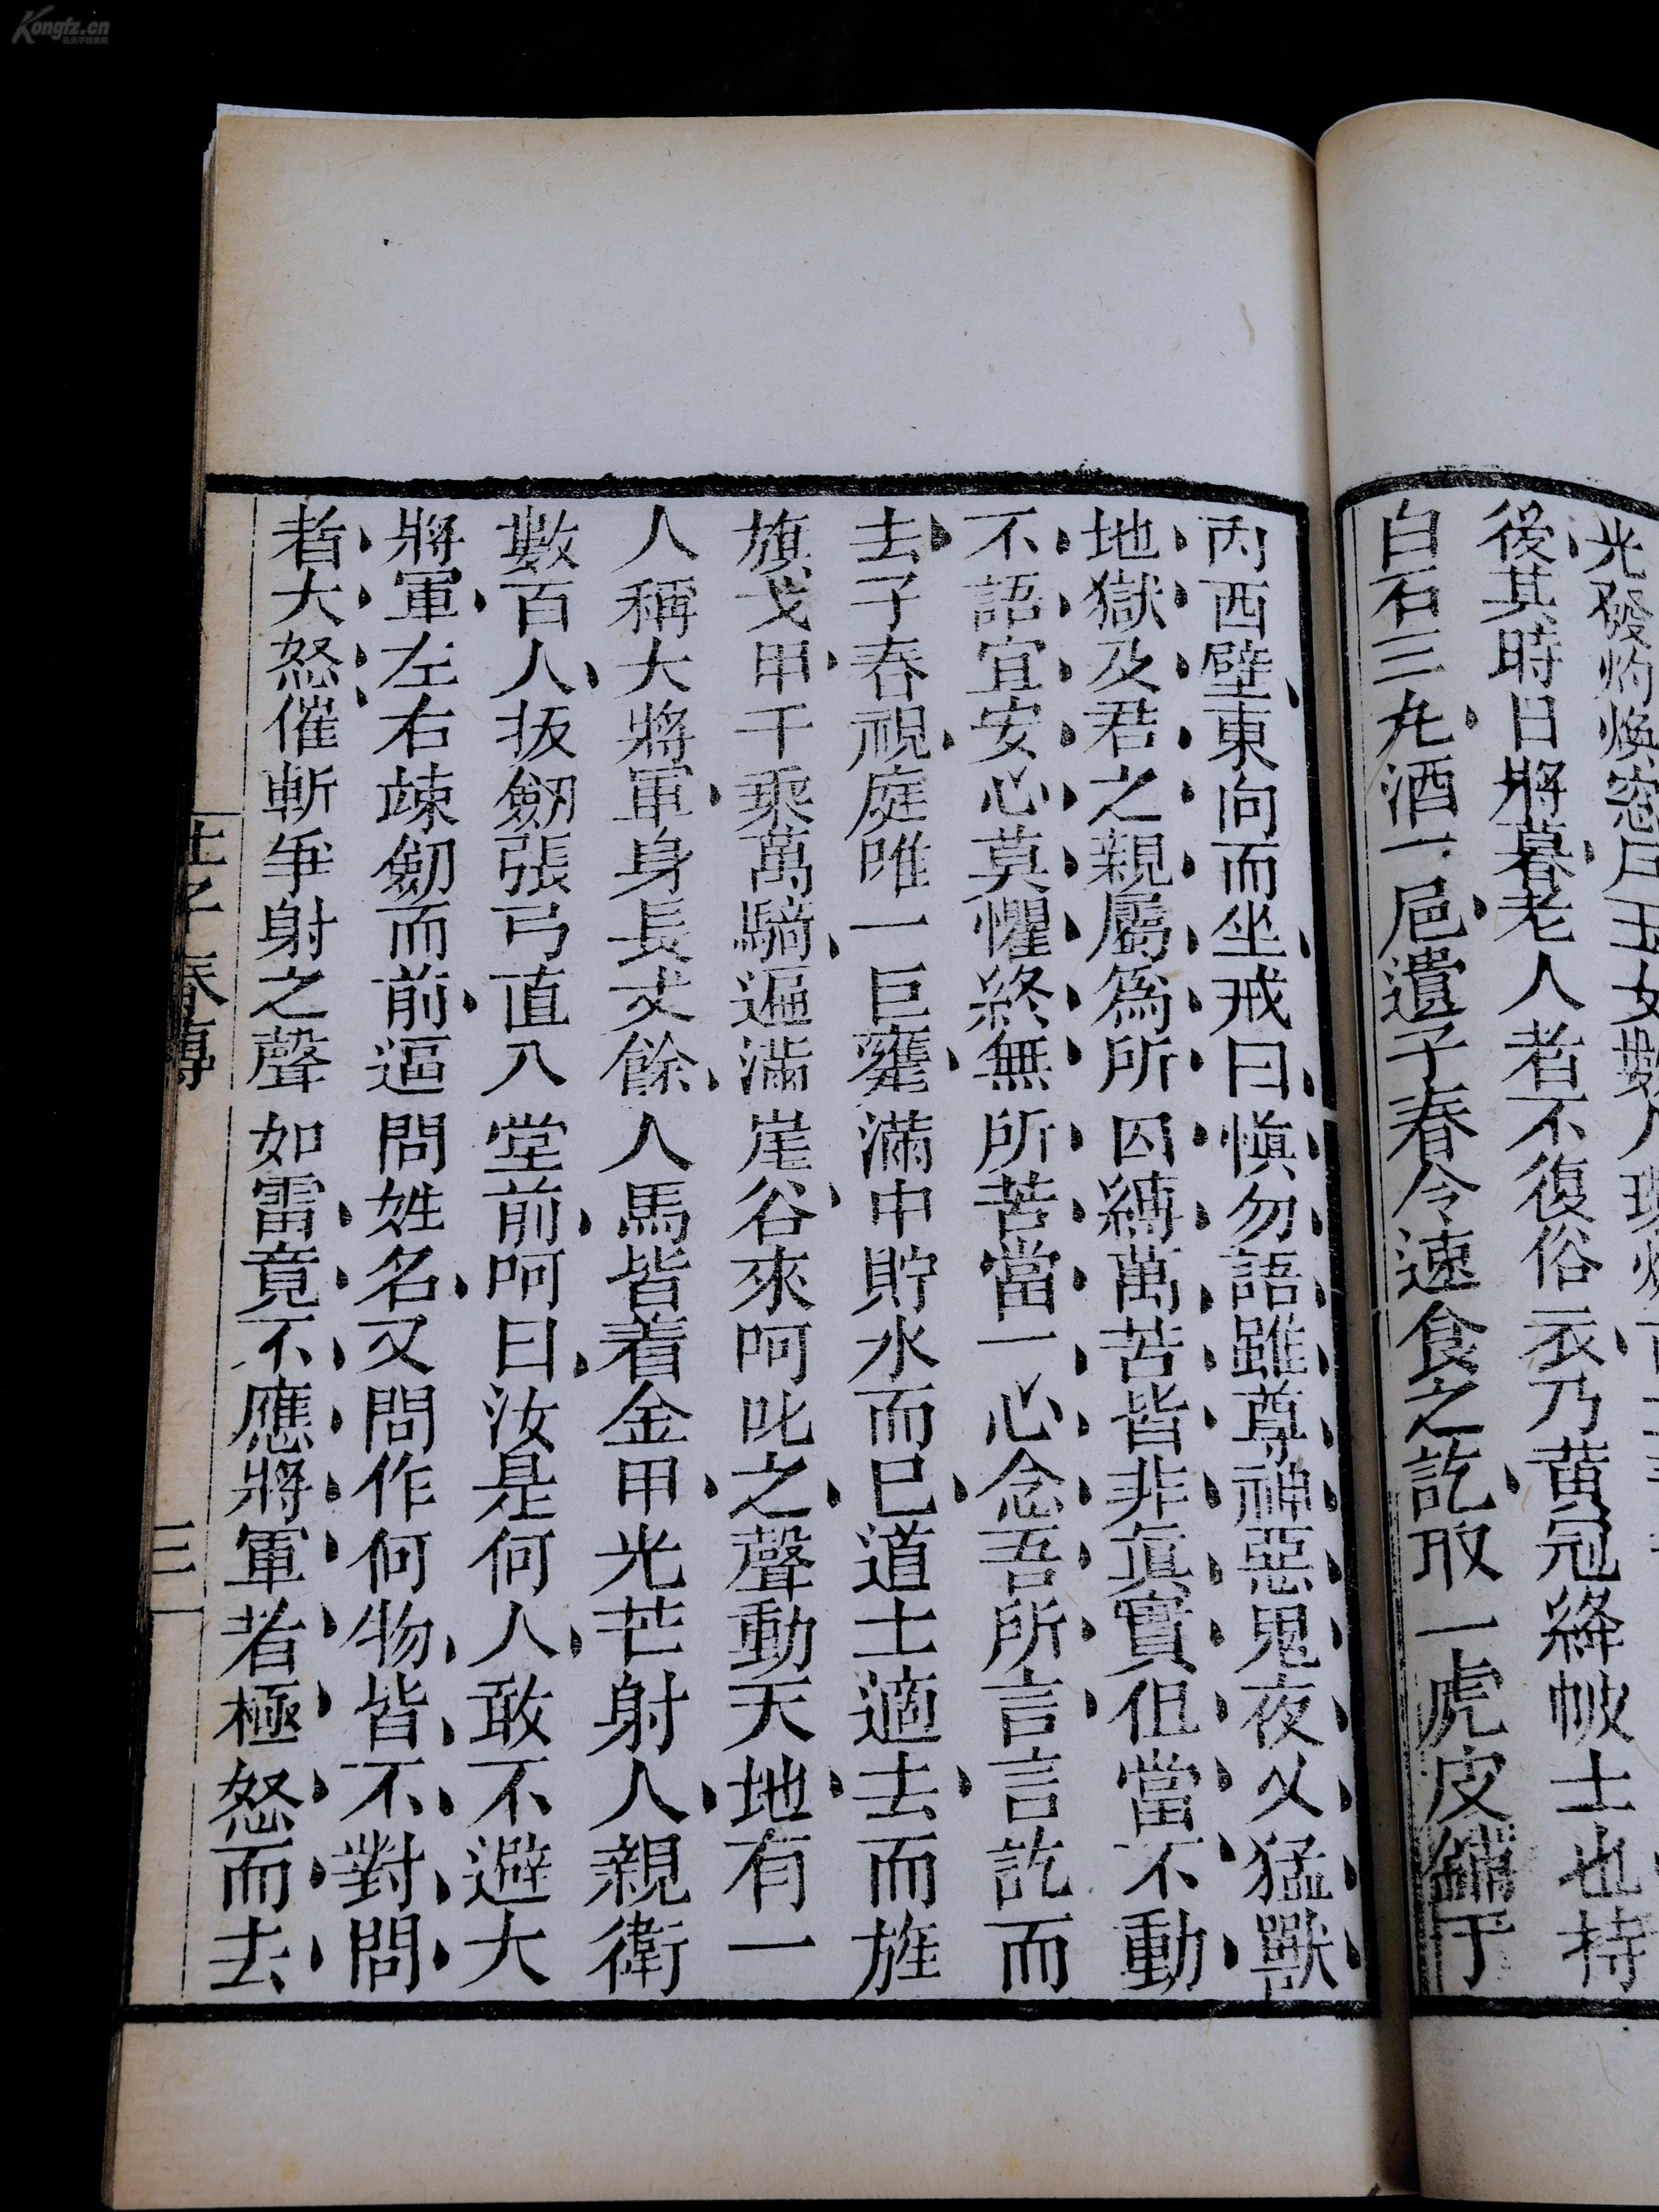 Kongfz.cn
孔夫子旧书网
後其時日將暮老人者不復俗衣乃黄冠絳帔士也持
白石三丸酒一巵遺子春令速食之訖取一虎皮鋪于
内西壁東向而坐戒曰愼勿語雖尊神惡鬼夜乂猛獸
地獄及君之親屬爲所囚縛萬苦皆非眞實但當不動
不語宜安心莫懼終無所苦當一心念吾所言言訖而
去子春視庭唯一巨甕滿中貯水而已道士適去而旌
旗戈甲千乘萬騎遍滿崖谷來呵叱之聲動天地有一
人稱大將軍身長丈餘人馬皆着金甲光芒射人親衛
數百人拔劒張弓直入堂前呵曰汝是何人敢不避大
將軍左右竦劒而前逼問姓名又問作何物皆不對問
者大怒催斬爭射之聲如雷竟不應將軍者極怒而去
三